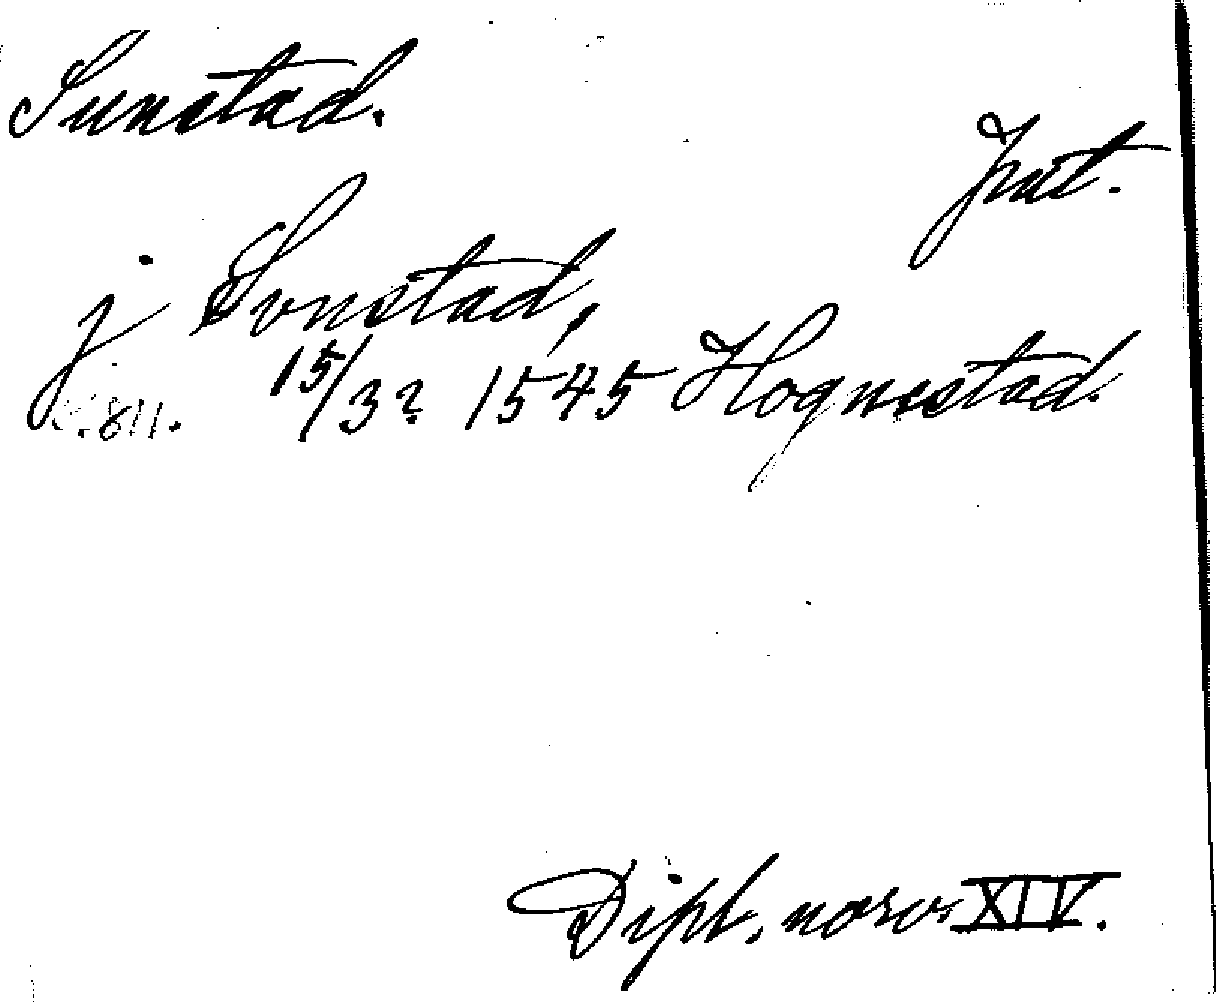 Sunstad.
Jnst.
j Sunstad,
s. 811. 15/3? 1545 Hognestad.
Dipl. norv. XIV.